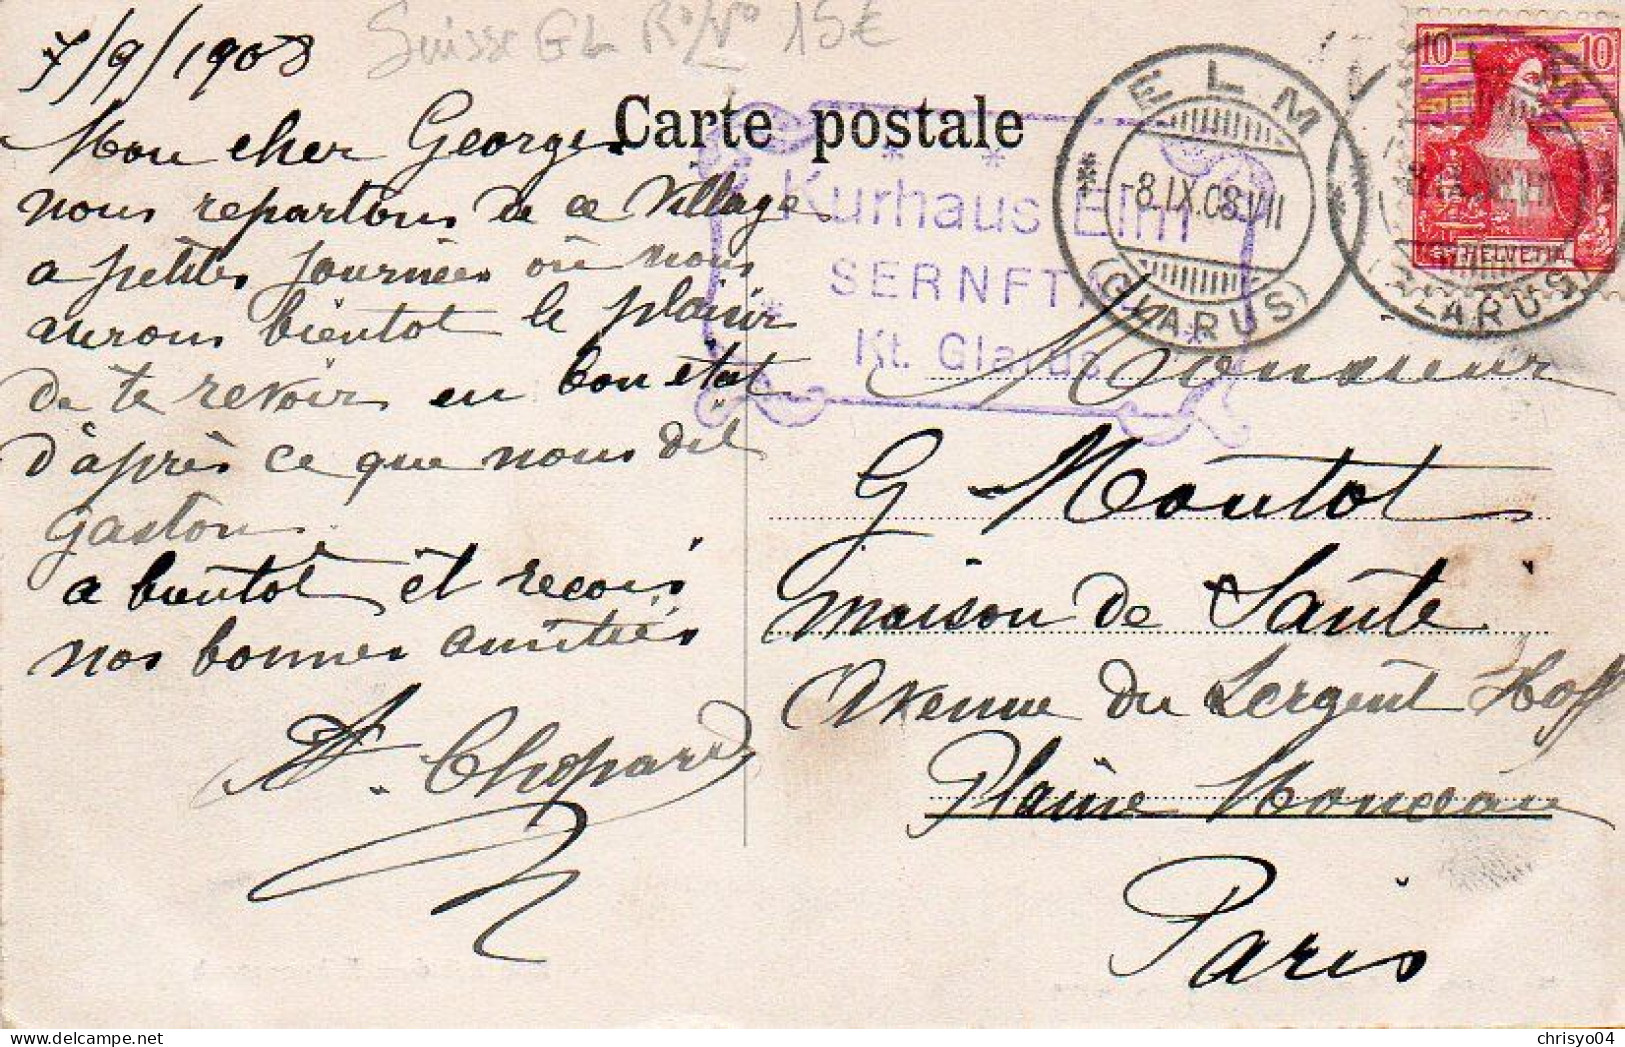 Suisse GL R°/V° 15€
7/9/1908
Carte postale
Mon cher Georges
nous repartons de ce village
a petites journées où nous
aurons bientot le plaisir
de te revoir en bon état
d'après ce que nous dit
Gaston
a bientot et recois
nos bonnes amitiés
Chopard
Kurhaus Elm
SERNFT
Kt. Glarus
ELM
-8.IX.08.VII
(GLARUS)
10 10
HELVETIA
GLARUS
Monsieur
G Moutot
maison de Santé
Avenue du Sergent Hoff
Plaine Monceau
Paris
chrisyo04